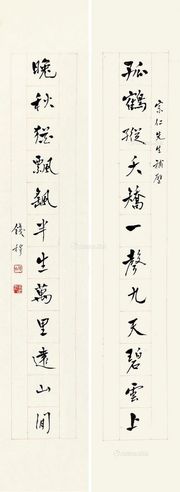 宗仁先生補壁
孤鶴縱夭矯一聲九天碧雲上
晚秋猶飄颻半生萬里遠山間
錢穆